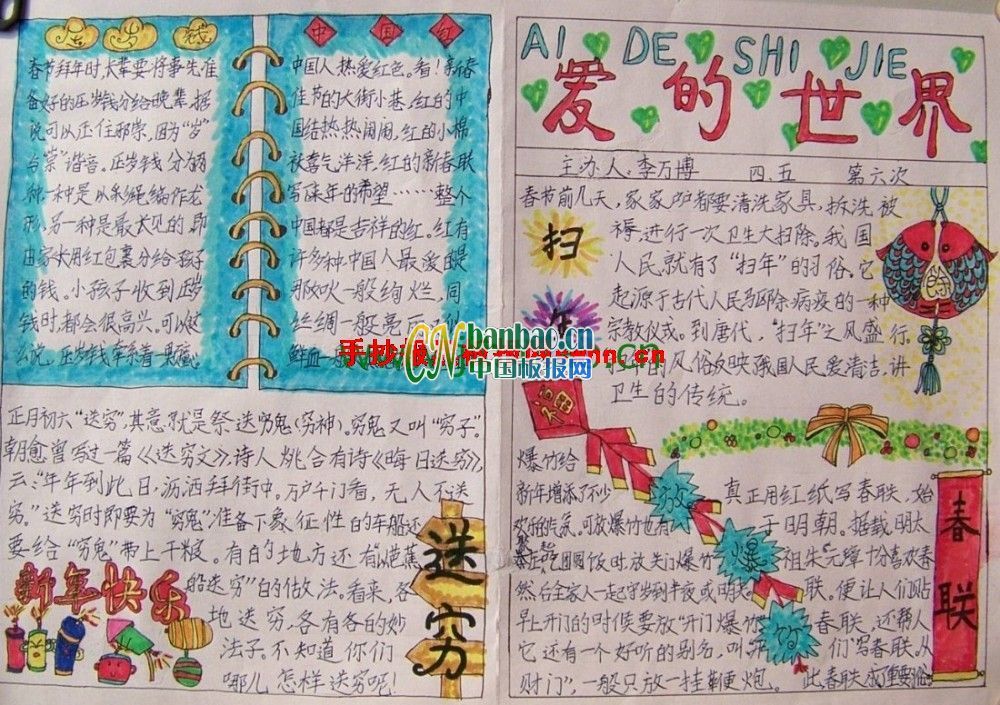 压岁钱
春节拜年时,长辈要将事先准
备好的压岁钱分给晚辈,据
说可以压住邪祟,因为"岁"
台"祟"谐音。压岁钱分为两
种,一种是以彩绳编作龙
形,另一种是最大见的,即
由家长用红包裹分给孩子
的钱。小孩子收到压岁
钱时,都会很高兴,可以这
么说,压岁钱牵系着一
中国红
中国人热爱红色。看!新春
佳节的大街小巷,红的中
国结热热闹闹,红的小棉
袄喜气洋洋,红的新春联
写
年的希望……整个
中国都是吉祥的红。红有
许多种,中国人最爱的是
那
一般绚烂,同
丝绸一般亮
鲜血一
正月初六"送穷",其意就是祭送穷鬼(穷神)。穷鬼又叫"穷子"。
愈曾写过一篇《送穷文》,诗人姚合有诗《晦日送穷》,
云:"年年到此日,沥洒拜街中。万户千门看,无人不送
穷。"送穷时即要为"穷鬼"准备下象征性的车船,还
要给"穷鬼"带上干粮。有白的地方还有"
船送穷"白的做法。看来,各
地送穷,各有各的妙
法子。不知道你们
哪儿怎样送穷呢!
送穷
新年快乐
AI DE SHI JIE
爱的世界
主办人:李万博 四.五 第六次
扫年
春节前几天,家家户都要清洗家具,拆洗被
褥,进行一次卫生大扫除。我国
人民就有了"扫年"的习俗。它
起源于古代人民驱除病疫的一种
宗教仪式。到唐代,"扫年"之风盛行。
风俗反映我国人民爱清洁,讲
卫生的传统。
除
福
放爆竹
爆竹给
新年增添了不少
欢乐的气氛。可放爆竹也有
吃团圆饭时放关门爆竹
然后全家人一起守岁到半夜或明
早上开门的时候要放"开门爆竹
它还有一个好听的别名,叫
财门",一般只放一挂鞭炮。
春联
真正用红纸写春联,始
于明朝。据载,明太
祖朱元璋十分喜欢春
联,便让人们贴
春联,还帮人
们写春联,从
此,春联成了重要
手抄报
CN banbao.cn
中国板报网